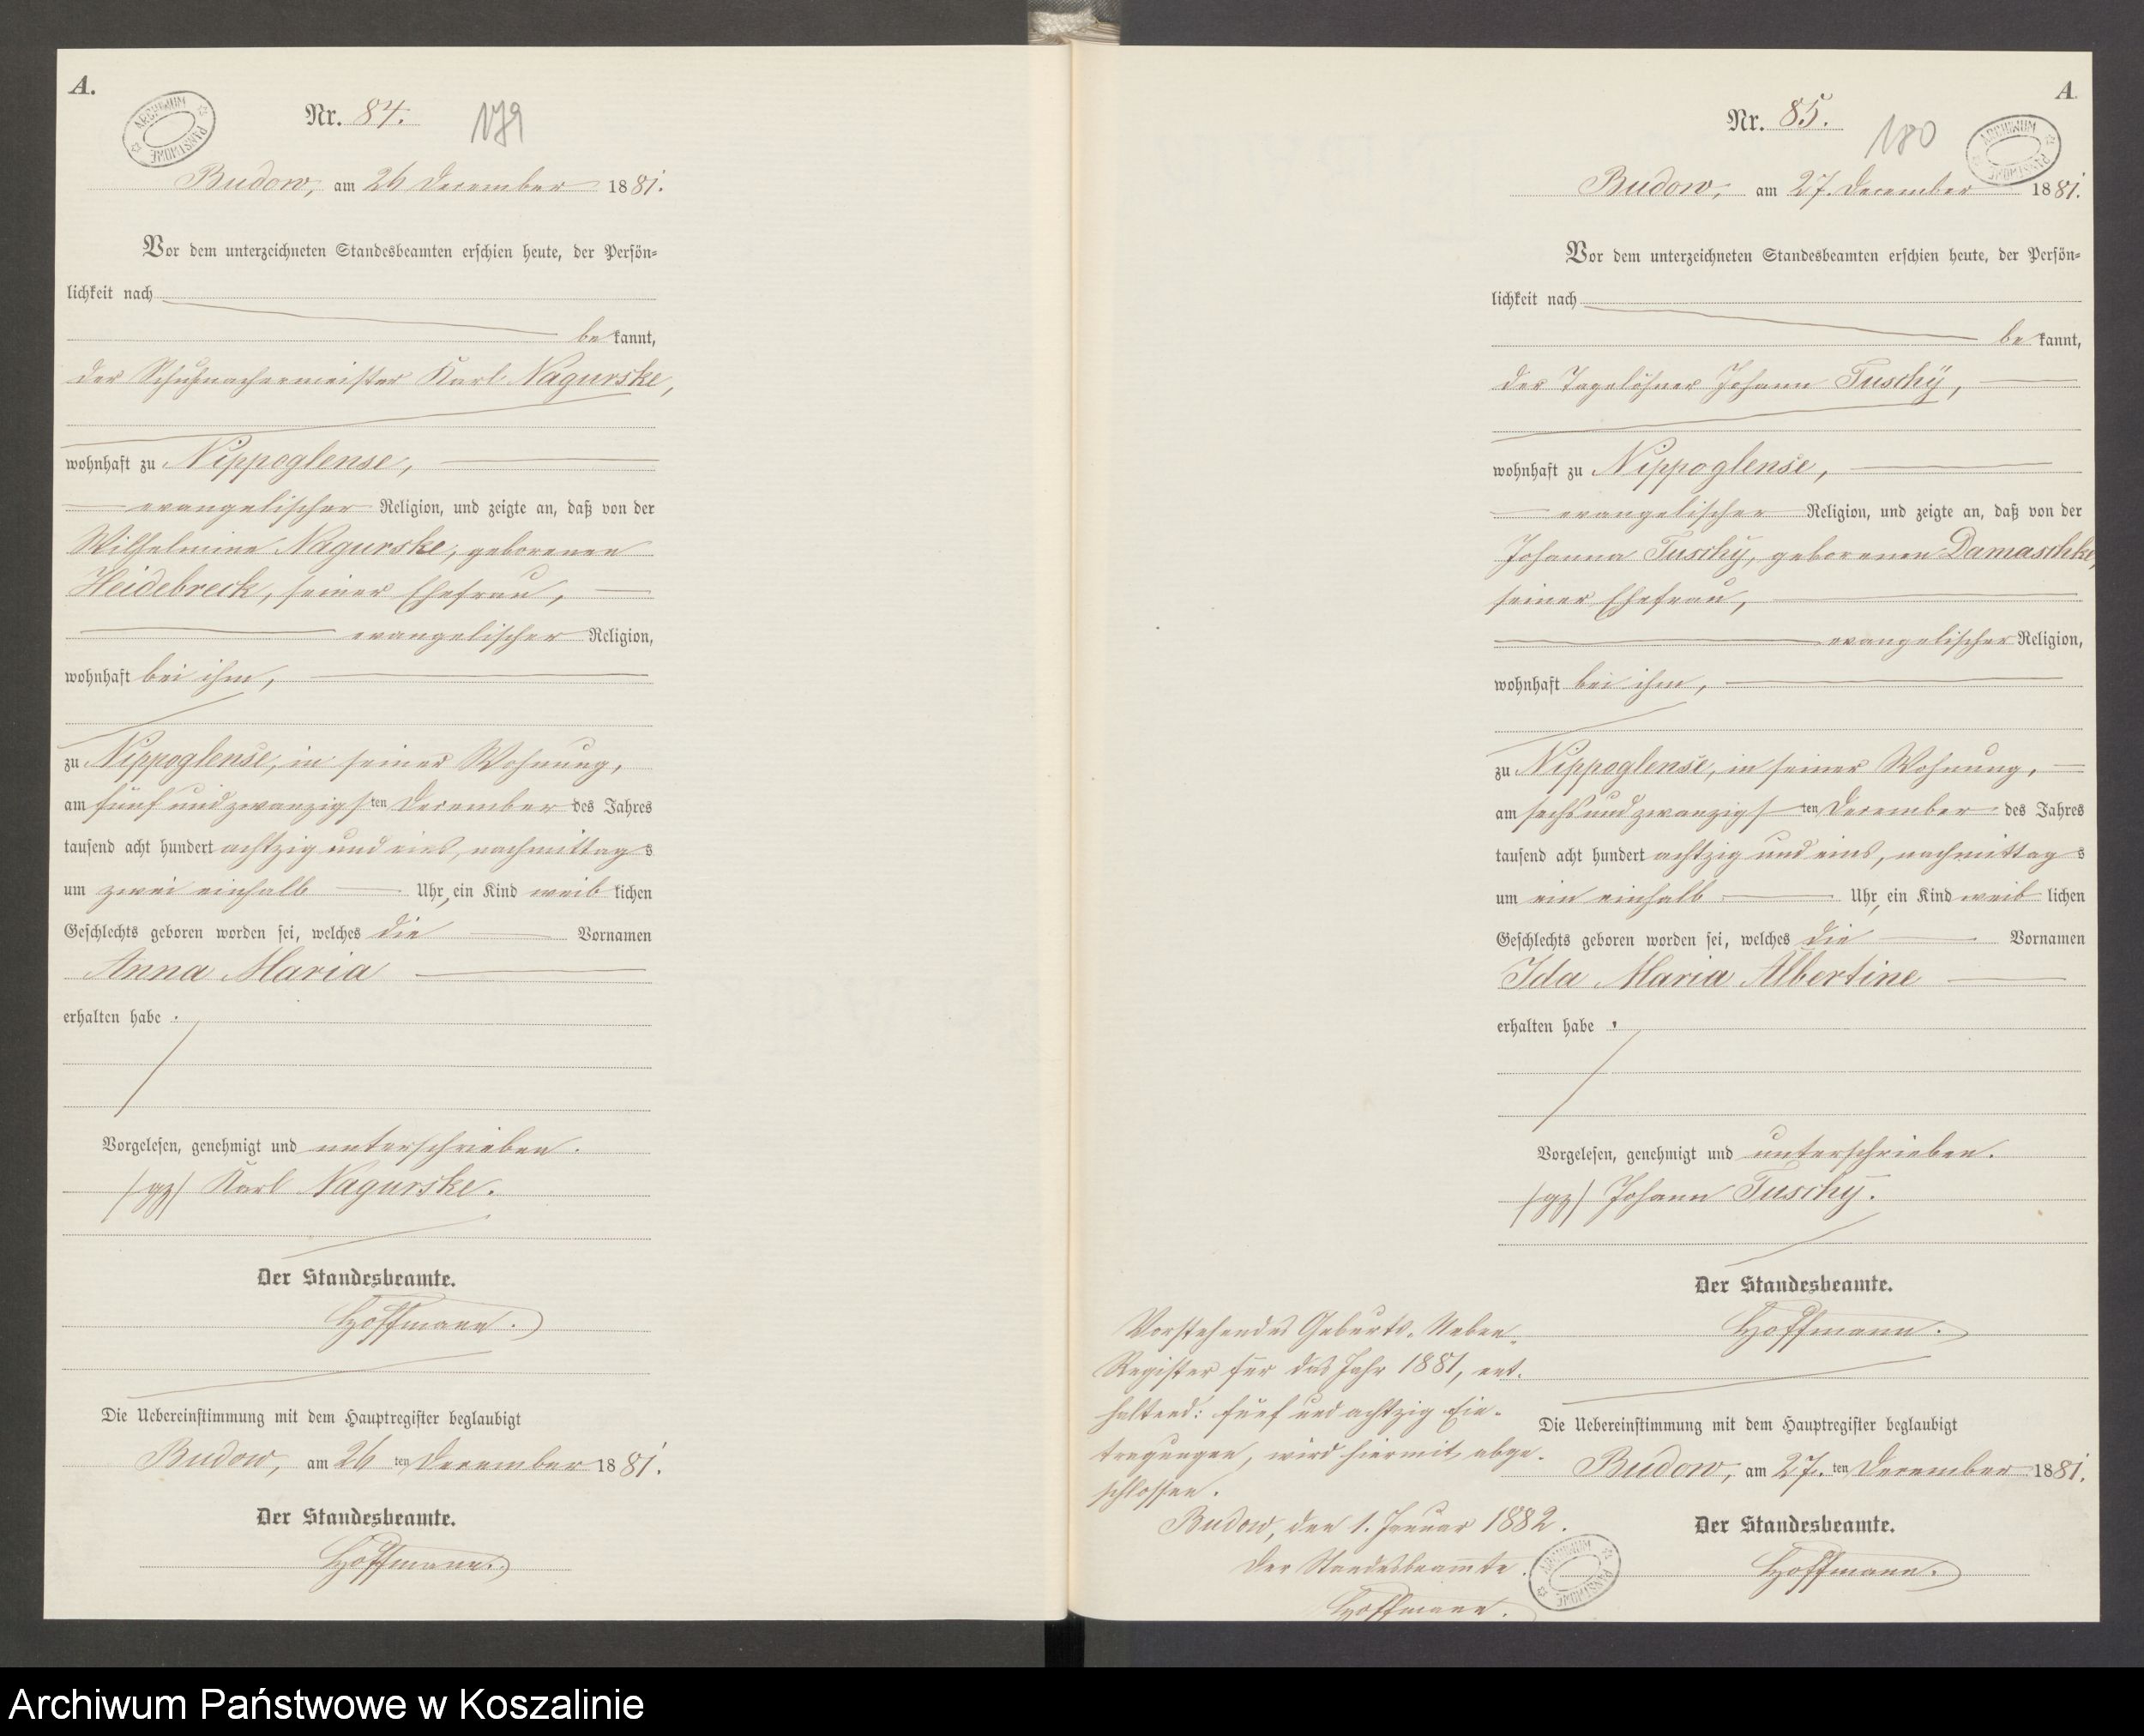 A.
ARCHIWUM PAŃSTWOWE
Nr. 84.
179
Budow, am 26 December 1881.
Vor dem unterzeichneten Standesbeamten erschien heute, der Persön-
lichkeit nach
be kannt,
der Schuhmachermeister Karl Nagurske,
wohnhaft zu Nippoglense,
evangelischer Religion, und zeigte an, daß von der
Wilhelmine Nagurske, geborenen
Heidebreck, seiner Ehefrau,
evangelischer Religion,
wohnhaft bei ihm,
zu Nippoglense, in seiner Wohnung,
am fünf und zwanzigsten December des Jahres
tausend acht hundert achtzig und eins, nachmittags
um zwei einhalb Uhr, ein Kind weiblichen
Geschlechts geboren worden sei, welches die Vornamen
Anna Maria
erhalten habe.
Vorgelesen, genehmigt und unterschrieben.
/gz/ Karl Nagurske.
Der Standesbeamte.
Hoffmann.
Die Uebereinstimmung mit dem Hauptregister beglaubigt
Budow, am 26 ten December 1881.
Der Standesbeamte.
Hoffmann.
A.
Nr. 85.
180
ARCHIWUM PAŃSTWOWE
Budow, am 27. December 1881.
Vor dem unterzeichneten Standesbeamten erschien heute, der Persön-
lichkeit nach
be kannt,
der Tagelöhner Johann Tuschÿ,
wohnhaft zu Nippoglense,
evangelischer Religion, und zeigte an, daß von der
Johanna Tuschÿ, geborenen Damaschke,
seiner Ehefrau,
evangelischer Religion,
wohnhaft bei ihm,
zu Nippoglense, in seiner Wohnung,
am sechs und zwanzigsten December des Jahres
tausend acht hundert achtzig und eins, nachmittags
um ein einhalb Uhr, ein Kind weiblichen
Geschlechts geboren worden sei, welches die Vornamen
Ida Maria Albertine
erhalten habe.
Vorgelesen, genehmigt und unterschrieben.
/gz/ Johann Tuschÿ.
Der Standesbeamte.
Hoffmann.
Die Uebereinstimmung mit dem Hauptregister beglaubigt
Budow, am 27. ten December 1881.
Der Standesbeamte.
Hoffmann.
Vorstehendes Geburts-Neben-
Register für das Jahr 1881, ent-
haltend: fünf und achtzig Ein-
tragungen, wird hiermit abge-
schlossen.
Budow, den 1. Januar 1882.
Der Standesbeamte.
Hoffmann.
ARCHIWUM PAŃSTWOWE
Archiwum Państwowe w Koszalinie